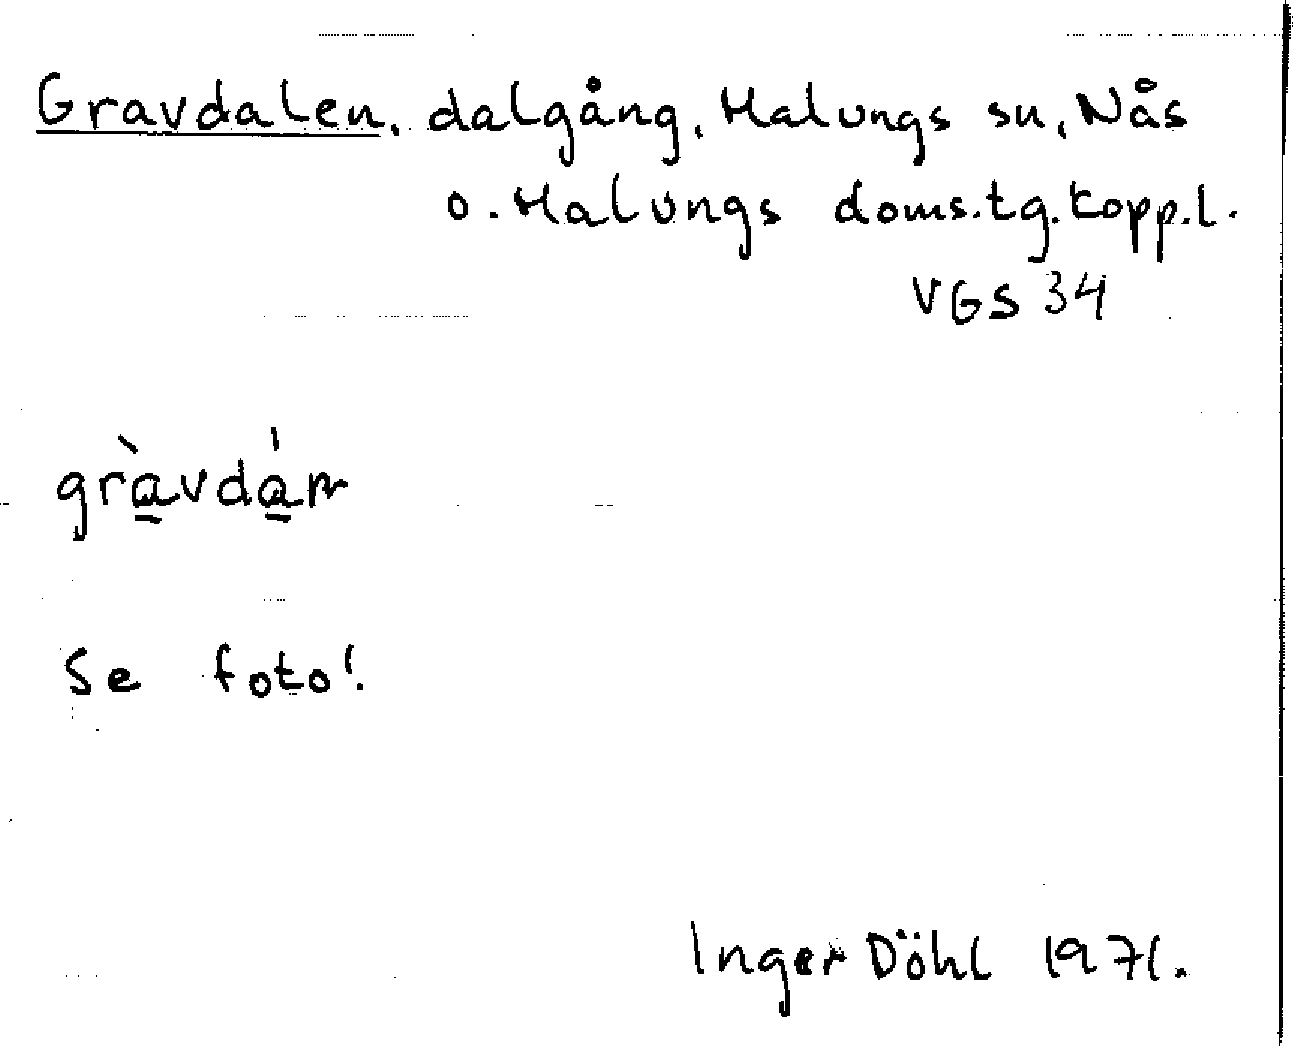 Gravdalen, dalgång, Malungs sn, Nås
o. Malungs doms.tg. Kopp.l.
VGS 34
gràvdán
Se foto!
Inger Döhl 1971.